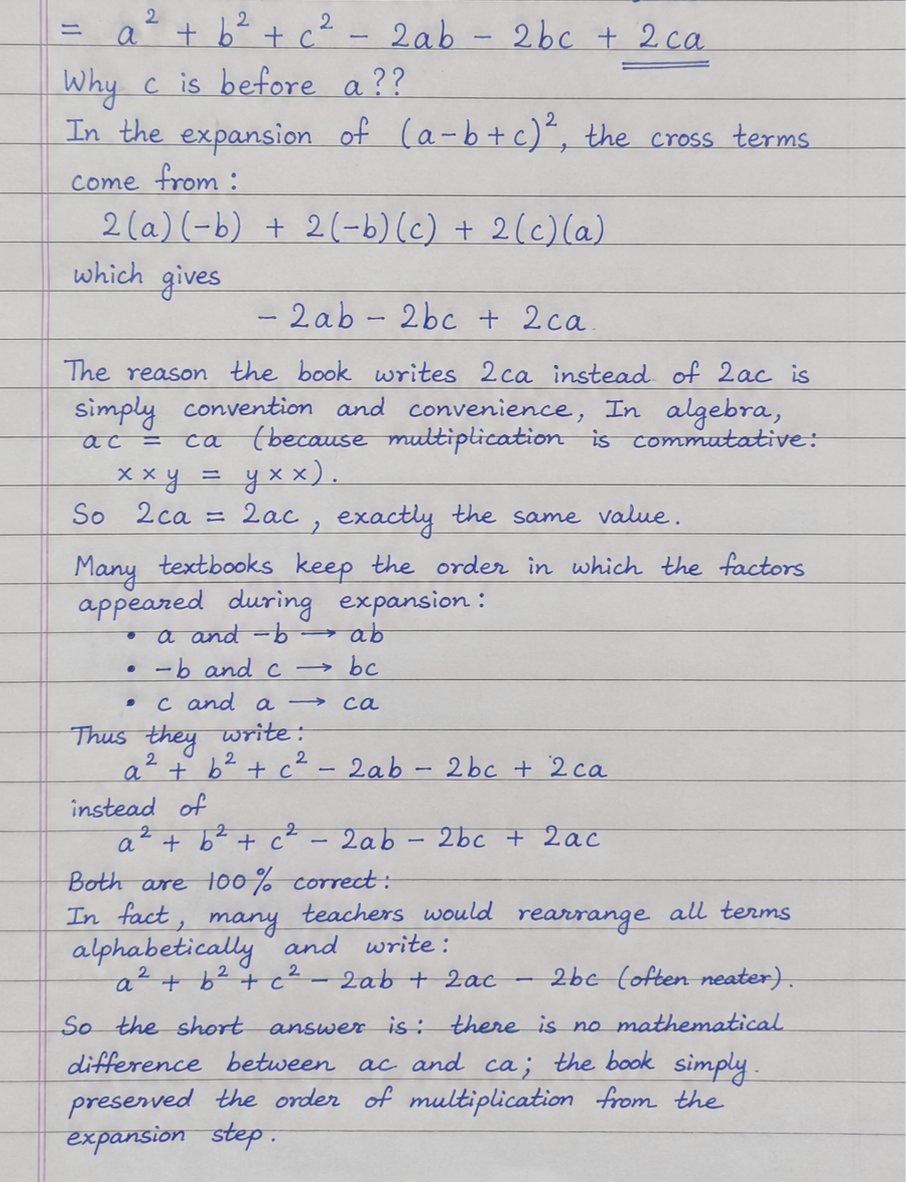 = a² + b² + c² - 2ab - 2bc + 2ca
Why c is before a??
In the expansion of (a-b+c)², the cross terms
come from:
2(a)(-b) + 2(-b)(c) + 2(c)(a)
which gives
- 2ab - 2bc + 2ca.
The reason the book writes 2ca instead of 2ac is
simply convention and convenience, In algebra,
ac = ca (because multiplication is commutative:
x × y = y × x).
So 2ca = 2ac, exactly the same value.
Many textbooks keep the order in which the factors
appeared during expansion:
• a and -b → ab
• -b and c → bc
• c and a → ca
Thus they write:
a² + b² + c² - 2ab - 2bc + 2ca
instead of
a² + b² + c² - 2ab - 2bc + 2ac
Both are 100% correct:
In fact, many teachers would rearrange all terms
alphabetically and write:
a² + b² + c² - 2ab + 2ac - 2bc (often neater).
So the short answer is: there is no mathematical
difference between ac and ca; the book simply.
preserved the order of multiplication from the
expansion step.